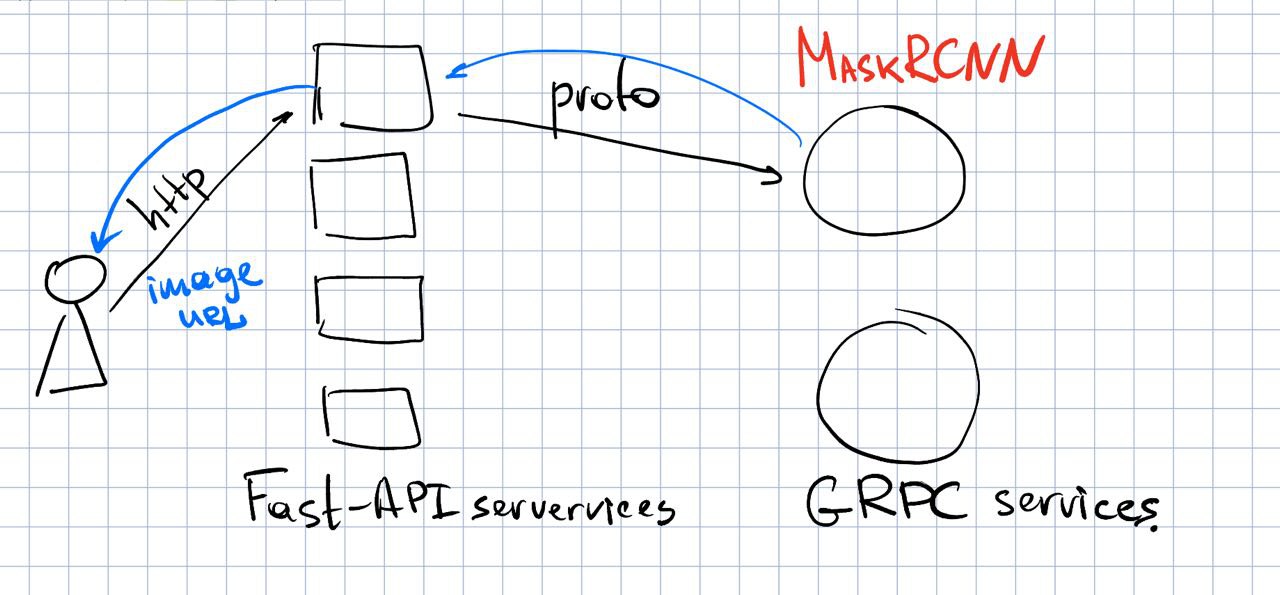 MASKRCNN
proto
http
image
URL
Fast-API servervices
GRPC services.